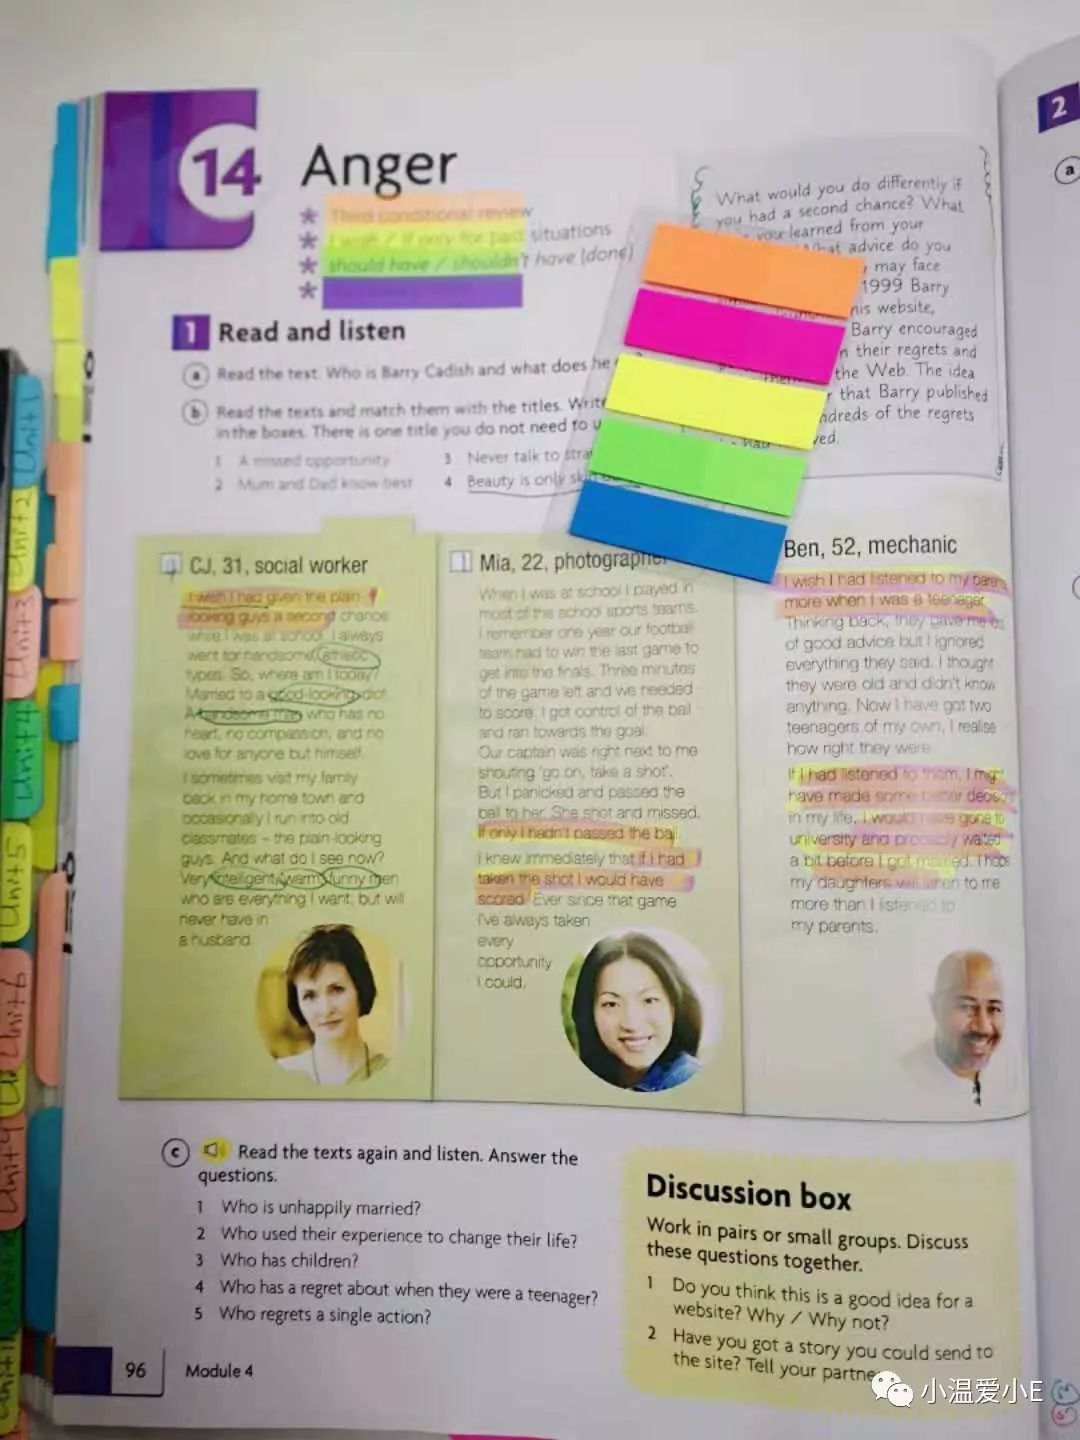 14
Anger
Third conditional review
I wish / If only for past situations
should have / shouldn't have (done)
What would you do differently if
you had a second chance? What
you learned from your
advice do you
may face
1999 Barry
his website,
Barry encouraged
their regrets and
the Web. The idea
that Barry published
of the regrets
1 Read and listen
a Read the text. Who is Barry Cadish and what does he
b Read the texts and match them with the titles. Write
in the boxes. There is one title you do not need to
1 A missed opportunity
2 Mum and Dad know best
3 Never talk to
4 Beauty is only
CJ, 31, social worker
I wish I had given the plain-
looking guys a second chance
while I was at school. I always
went for handsome, athletic
types. So, where am I today?
Married to a good-looking idiot.
A handsome man who has no
heart, no compassion, and no
love for anyone but himself.
I sometimes visit my family
back in my home town and
occasionally I run into old
classmates – the plain-looking
guys. And what do I see now?
Very intelligent, warm, funny men
who are everything I want, but will
never have in
a husband.
1 Mia, 22, photographer
When I was at school I played in
most of the school sports teams.
I remember one year our football
team had to win the last game to
get into the finals. Three minutes
of the game left and we needed
to score. I got control of the ball
and ran towards the goal.
Our captain was right next to me
shouting 'go on, take a shot'.
But I panicked and passed the
ball to her. She shot and missed.
If only I hadn't passed the ball.
I knew immediately that if I had
taken the shot I would have
scored. Ever since that game
I've always taken
every
opportunity
I could.
Ben, 52, mechanic
I wish I had listened to my
more when I was a teenager.
Thinking back, they gave me
of good advice but I ignored
everything they said. I thought
they were old and didn't know
anything. Now I have got two
teenagers of my own, I realise
how right they were.
If I had listened to them, I
have made some better
in my life. I would have gone to
university and probably waited
a bit before I got married. I hope
my daughters will listen to me
more than I listened to
my parents.
c Read the texts again and listen. Answer the
questions.
1 Who is unhappily married?
2 Who used their experience to change their life?
3 Who has children?
4 Who has a regret about when they were a teenager?
5 Who regrets a single action?
Discussion box
Work in pairs or small groups. Discuss
these questions together.
1 Do you think this is a good idea for a
website? Why / Why not?
2 Have you got a story you could send to
the site? Tell your
96 Module 4
2
a
Unit 1
Unit 2
Unit 3
Unit 4
Unit 5
Unit 6
小温爱小E